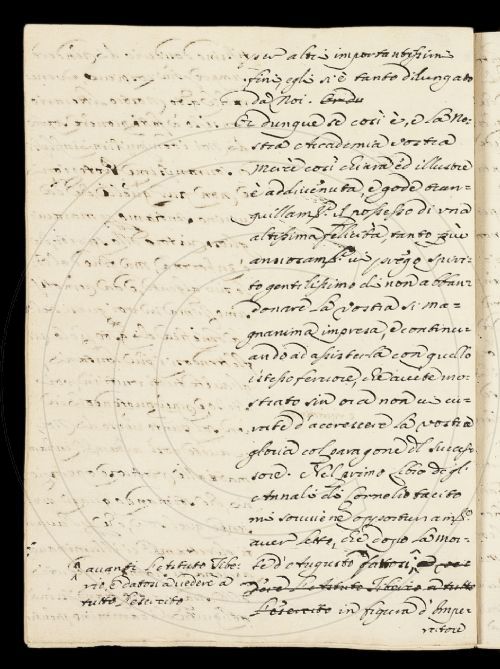 per altri importantissimi
fini, egli si è tanto dilungato
da Noi.
Or dunque se così è, e la No-
stra Accademia vostra
Mercè così chiara ed illustre
è addivenuta, e gode tran-
quillam.e il possesso di una
altissima felicità, tanto più
ansiosam.e vi priego Spiri-
to gentilissimo di non abban-
donare la vostra sì ma-
gnanima impresa, e continu-
ando ad assisterla con quello
istesso fervore, che avete mo-
strato sin ora non vi cu-
rate d'accrescere la vostra
gloria col paragone del succes-
sore. Nel primo libro degli
Annali di Cornelio Tacito
mi sovviene opportunam.e
aver letto, che dopo la mor-
te d'Augusto fattosi
l'esercito in figura d'Impe-
ratore
avanti Letituto Tibe-
rio, e datosi a vedere a
tutto l'esercito